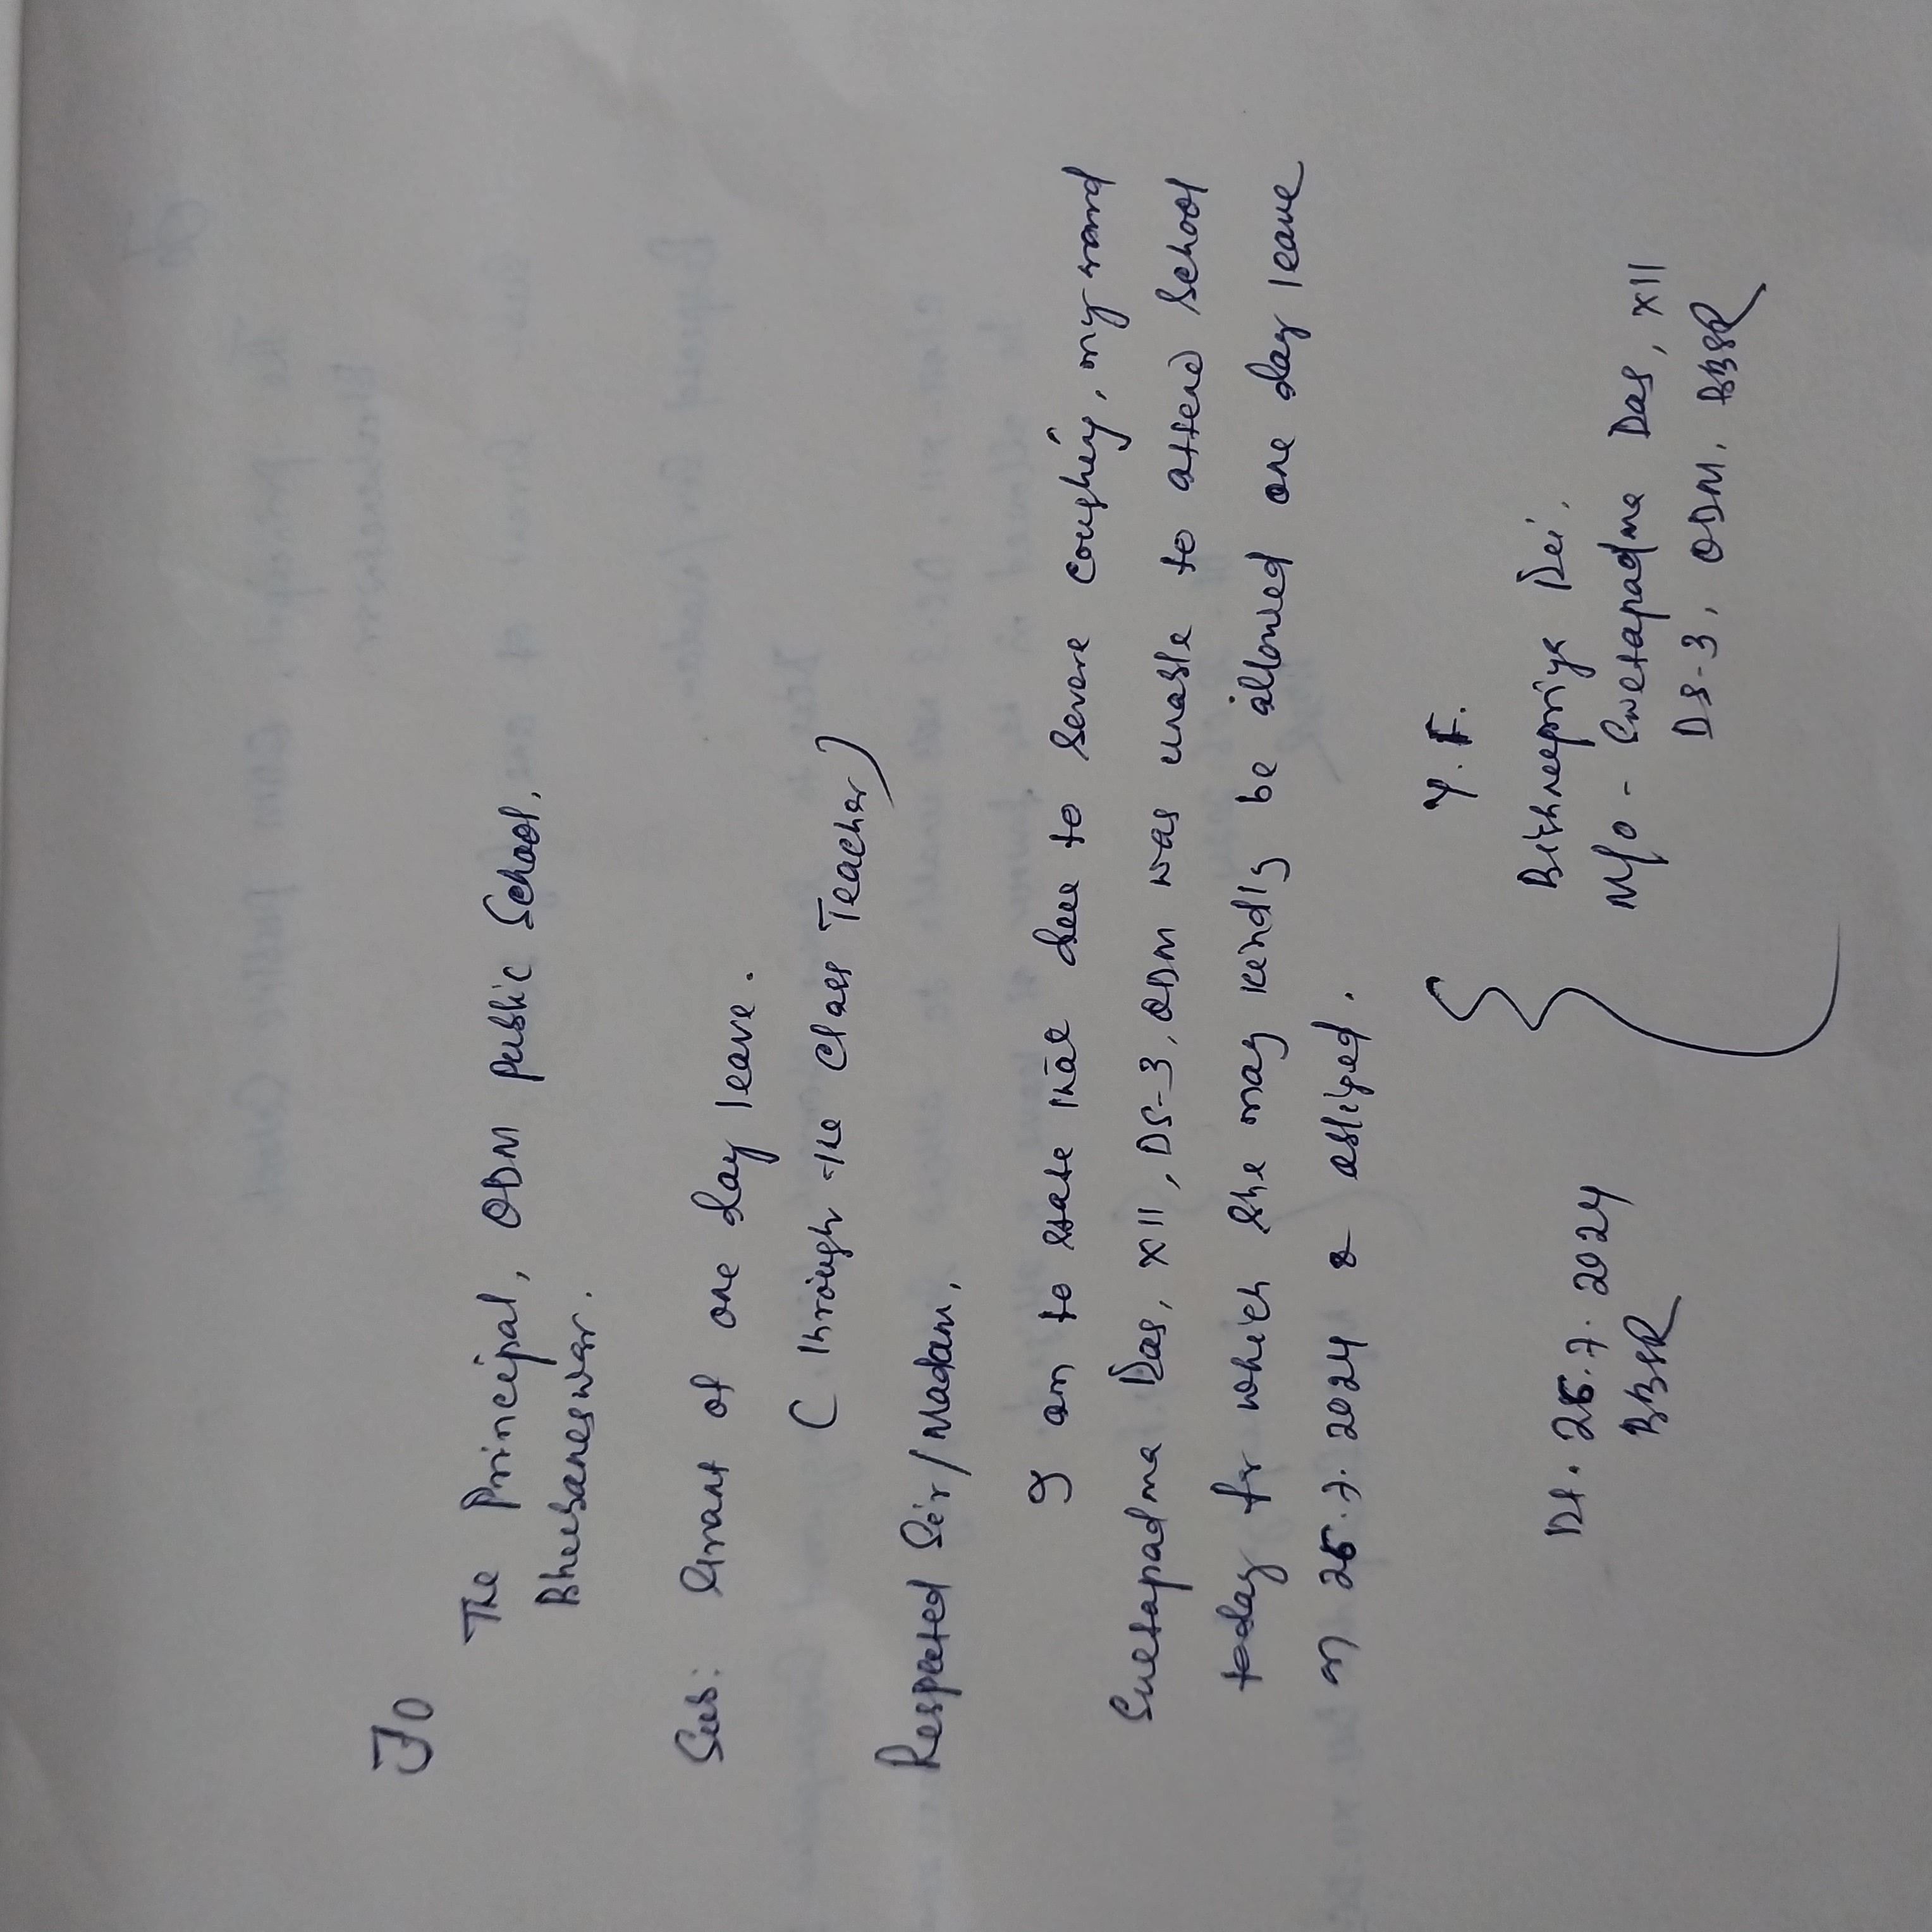 To
The Principal, ODM Public School,
Bhubaneswar.
Sub: Grant of one day leave.
(Through the Class Teacher)
Respected Sir/Madam,
I am to state that due to severe coughing, my ward
Swetapadma Das, XII, DS-3, ODM was unable to attend School
today for which she may kindly be allowed one day leave
on 25.7.2024 & obliged.
Y.F.
Bishnupriya Dei.
M/o - Swetapadma Das, XII
DS-3, ODM, BBSR
Dt. 25.7.2024
BBSR